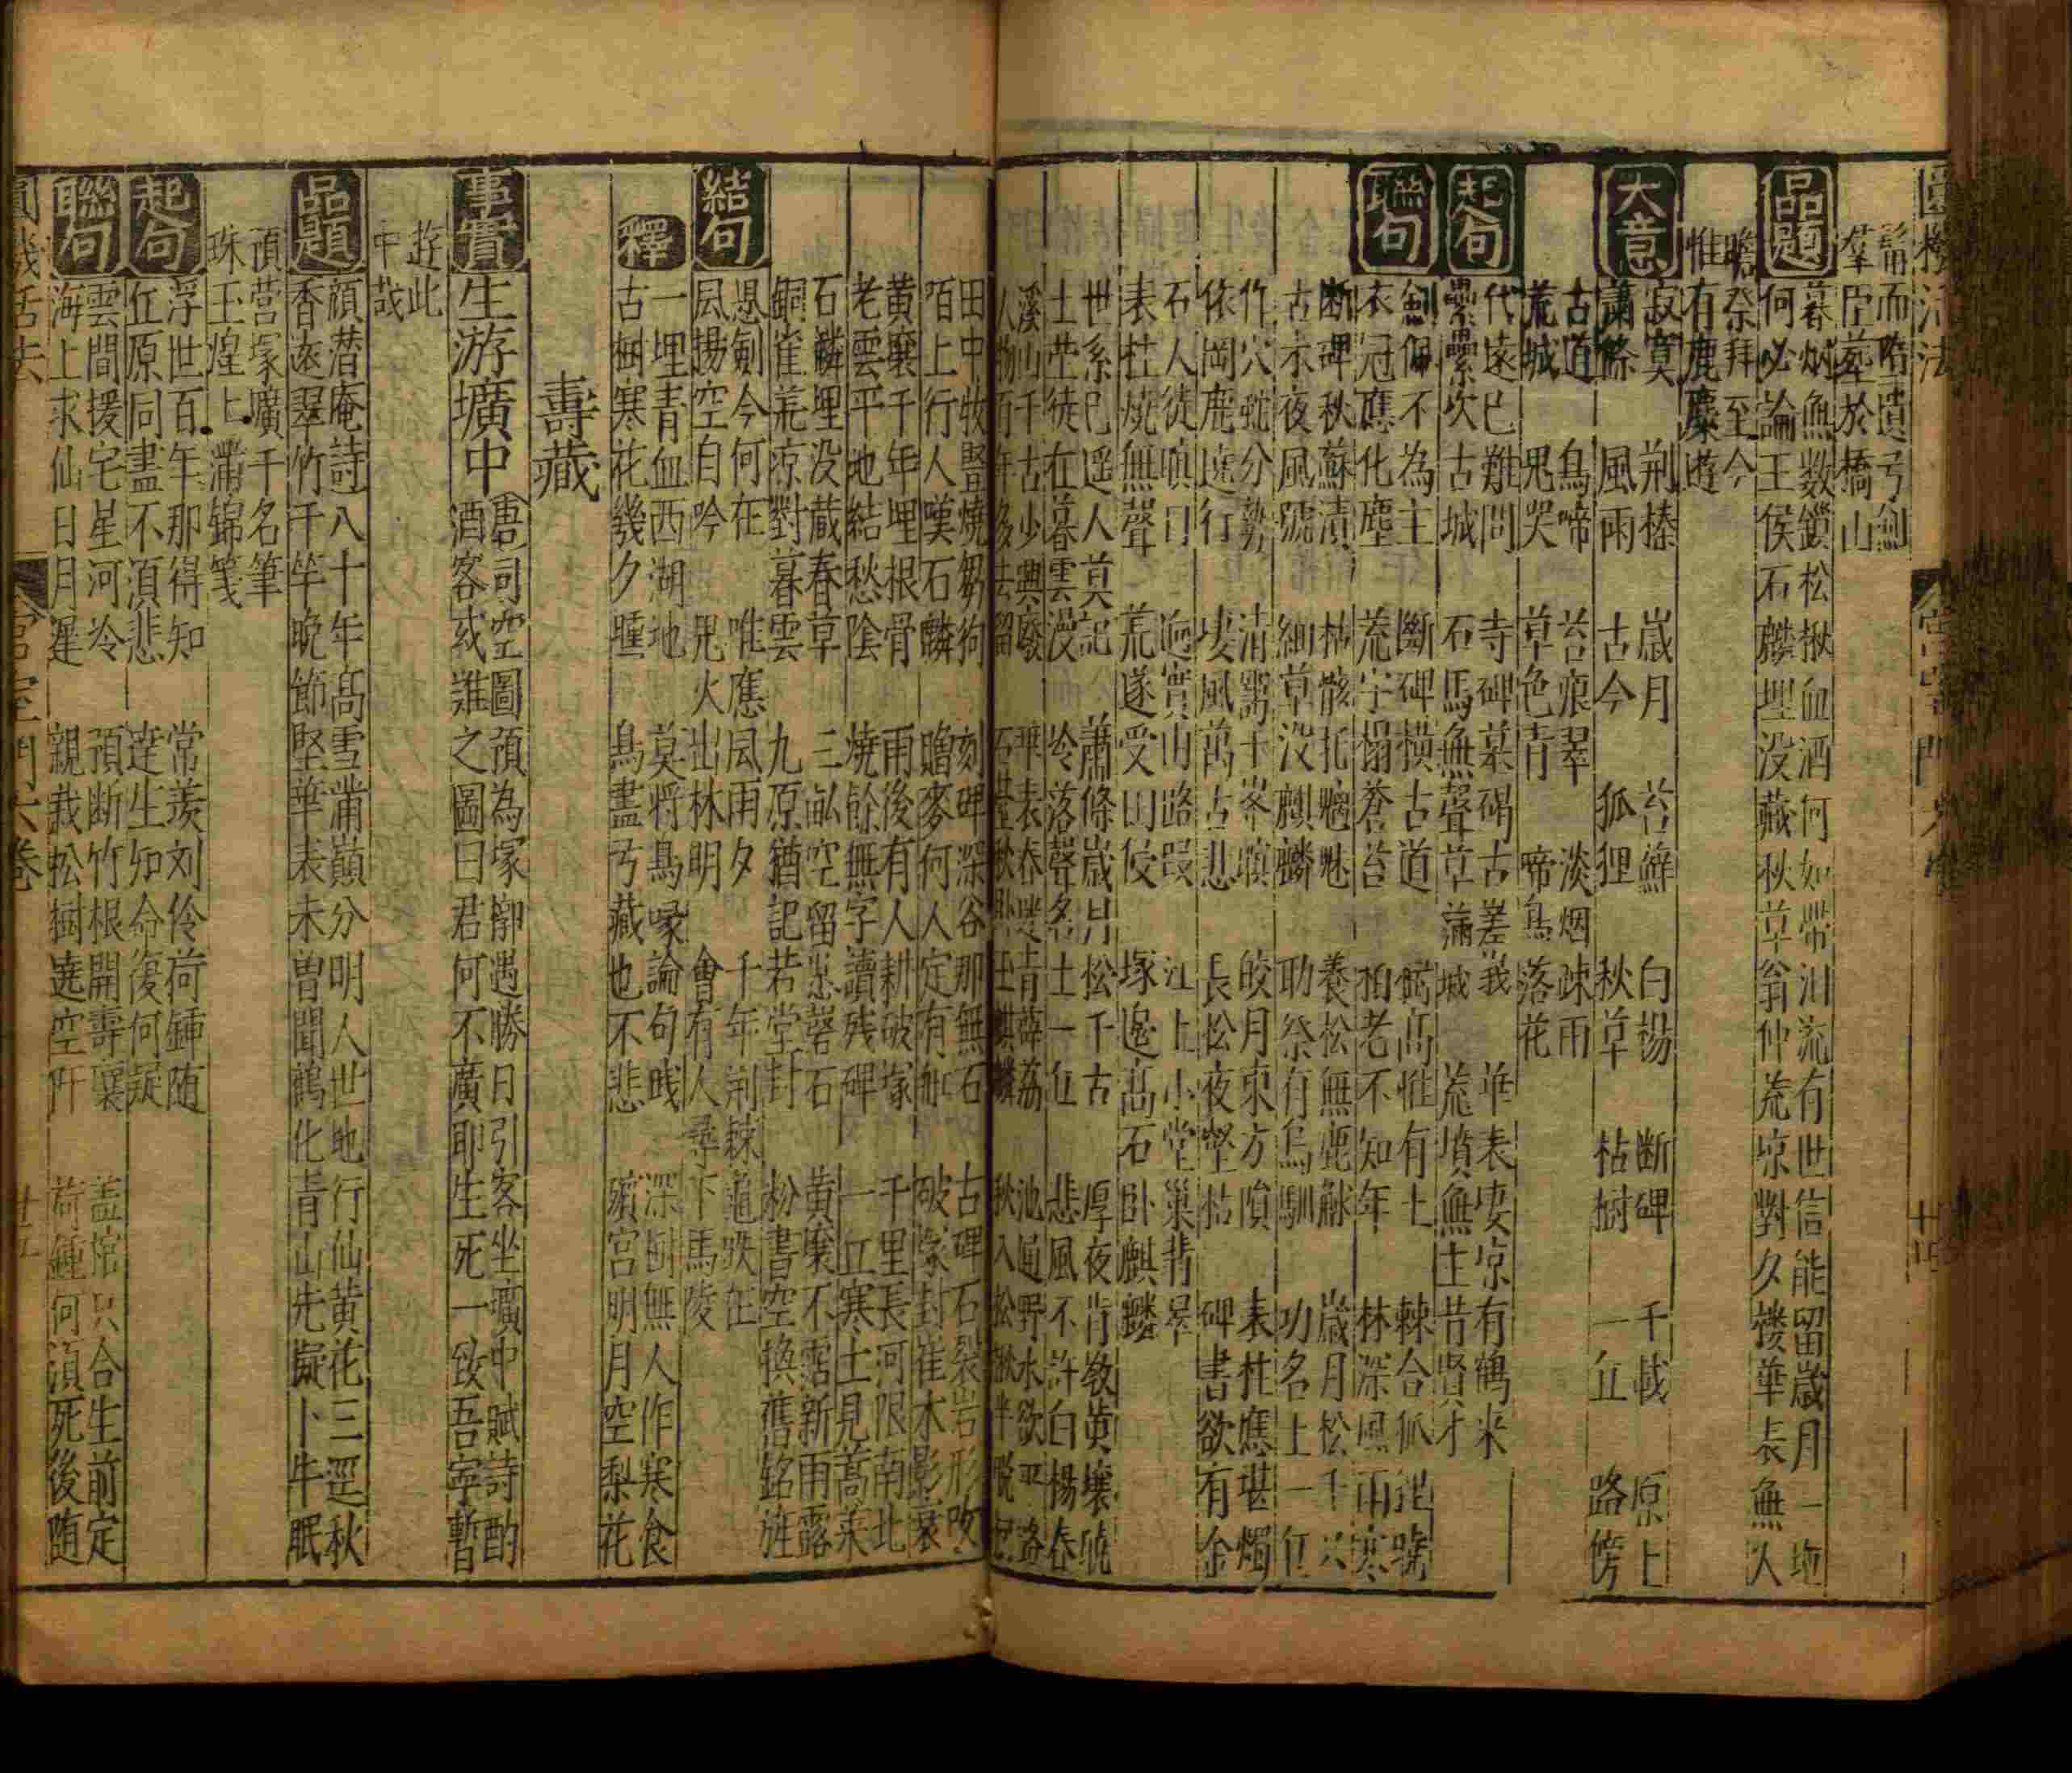 髯而哈遺弓劍
羣臣葬於橋山
品題
暮烟無数鎖松楸血酒何如帶泪流有世信能留歲月一坵
何必論王侯石麟埋没藏秋草翁仲荒凉對夕楼華表無人
瞻奈拜至今
惟有鹿麋遊
大意
寂寞 荆榛 歲月 苔蘚 白楊 断碑 千載 原上
蕭條 風雨 古今 狐狸 秋草 枯樹 一丘 路傍
古道 鳥啼 苔痕翠 淡烟疎雨
荒城 鬼哭 草色青 啼鳥落花
起句
代遠已難問 寺碑墓碣古嵯峩 華表凄凉有鶴来
纍纍坎古城 石馬無聲草蒲城 荒墳無主昔賢才
聯句
劍佩不為主 斷碑横古道 碣高惟有土 棘合狐狸號
衣冠應化塵 荒字搨蒼苔 柏老不知年 林深風雨寒
断碑秋蘇漬 枯骸托魑魅 養松無鹿觧 歲月松千尺
古木夜風號 細草没麒麟 助祭有烏馴 功名土一丘
作穴蛇分勢 皎月東方隕 表柱應堪燭
依岡鹿遶行 凄風萬古悲 長松夜壑枯 碑書欲有金
石人徒慎日 江上小堂巢翡翠
表柱燒無聲 荒遂受田侵 塚邉高石卧麒麟
世系已遥人莫記 蕭條歲月松千古 厚夜肯教黄壤曉
土塋徒在暮雲漫 冷落聲名土一丘 悲風不許白楊春
溪山千古少興廢 華表春 青薜荔 池通野水欲平路
人物百年多去留 石 秋卧玉麒麟 秋入松楸半脱
田中牧豎燒芻狗 刻碑深谷那無石 古碑石裂岩形改
陌上行人嘆石麟 贍麥何人定有舡 破冢封崔木影衰
黄壤千年埋根骨 雨後有人耕破塚 千里長河限南北
老雲平地結愁陰 燒餘無字讀残碑 一丘寒士見蒿莱
石麟埋没蔵春草 三畝空留 石 黄壤不霑新雨露
銅雀荒凉對暮雲 九原猶記若堂封 松書空換舊銘旌
結句
愚劍今何在 唯應風雨夕 千年荆棘 龜趺在
風揚空自吟 鬼火出林明 會有人尋下馬陵
一埋青血西湖地 莫將鳥喙論句践 深樹無人作寒食
釋
古樹寒花幾夕曛 鳥盡弓藏也不悲 殯宫明月空梨花
壽藏
事實
生游壙中 唐司空圖預為塚槨遇勝日引客坐壙中賦詩酌
酒客或難之圖曰君何不廣耶生死一致吾寧暫
遊此
中哉
品題
顔潜庵詩八十年高雪滿巔分明人世地行仙黄花三逕秋
香遠翠竹千竿晩節堅華表未曽聞鶴化青山先擬卜牛眠
預营塚壙千名筆
珠玉煌上滿锦箋
起句
浮世百年那得知 常羡刘伶荷鍾随
丘原同盡不湏悲 達生知命復何疑
聯句
雲間援宅星河冷 預断竹根開壽壤 盖棺只合生前定
海上求仙日月遲 親栽松樹遶空阡 荷鍾何湏死後随